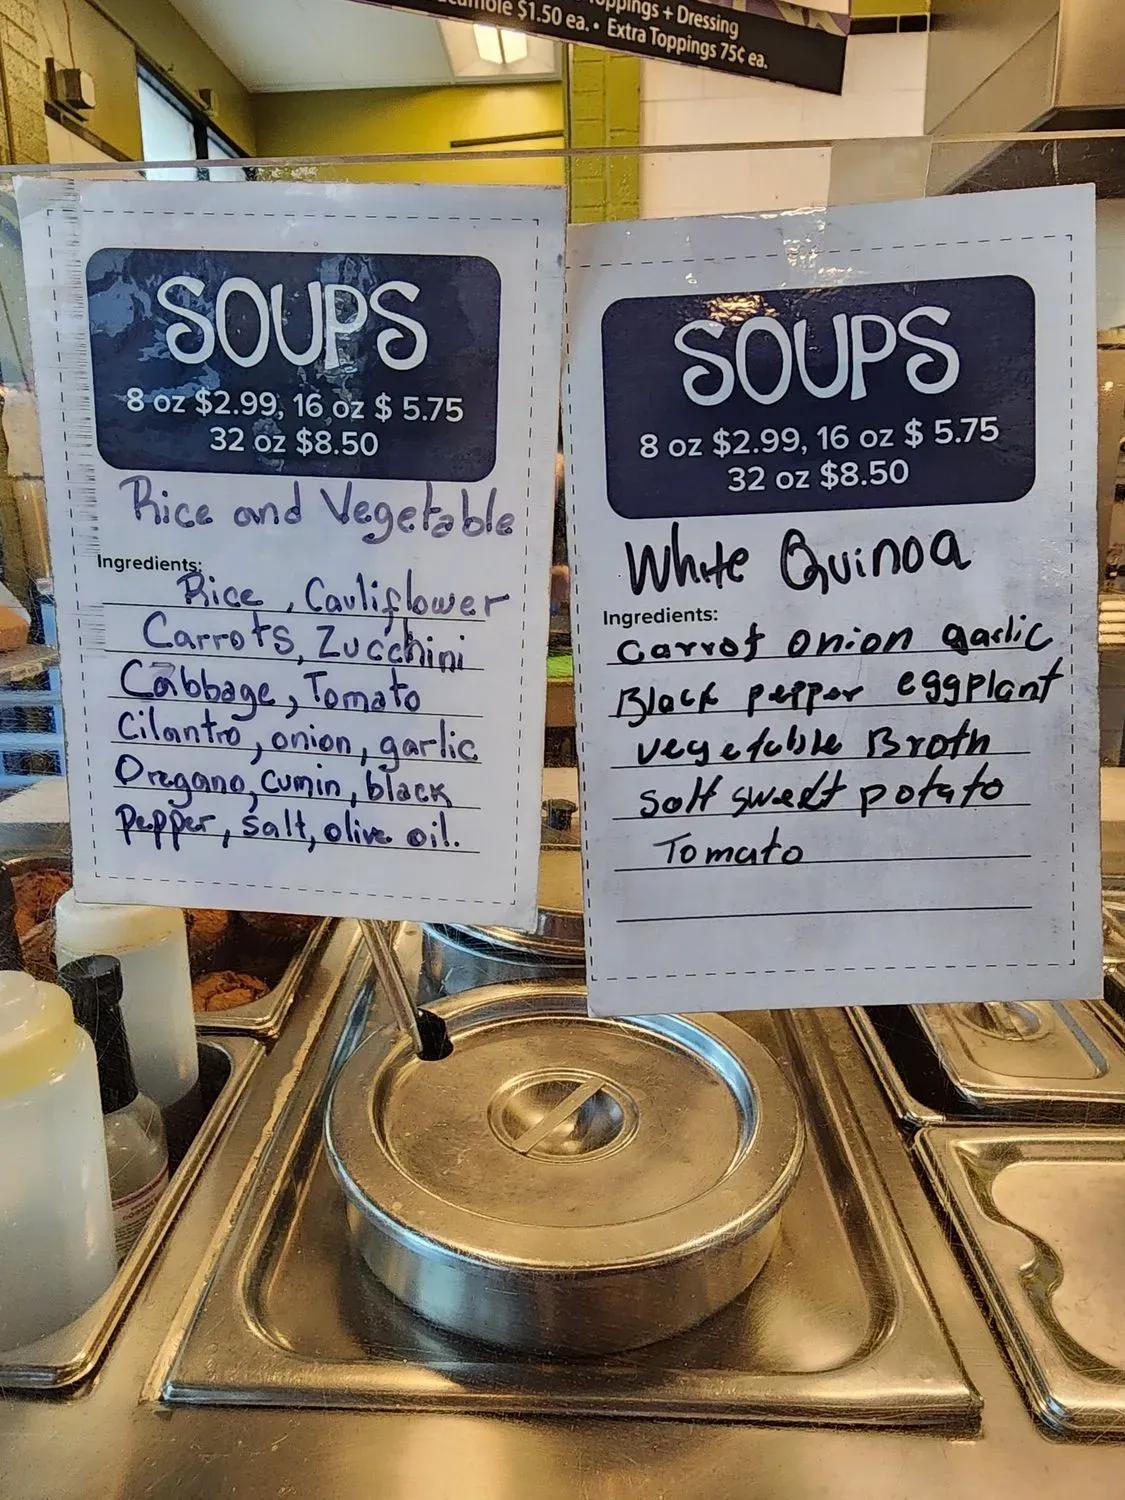 $1.50 ea. • Extra Toppings 75¢ ea.
+ Dressing
SOUPS
8 oz $2.99, 16 oz $ 5.75
32 oz $8.50
Rice and Vegetable
Ingredients:
Rice, Cauliflower
Carrots, Zucchini
Cabbage, Tomato
Cilantro, onion, garlic
Oregano, cumin, black
Pepper, salt, olive oil.
SOUPS
8 oz $2.99, 16 oz $ 5.75
32 oz $8.50
White Quinoa
Ingredients:
Carrot onion garlic
Black pepper eggplant
vegetable Broth
salt sweet potato
Tomato